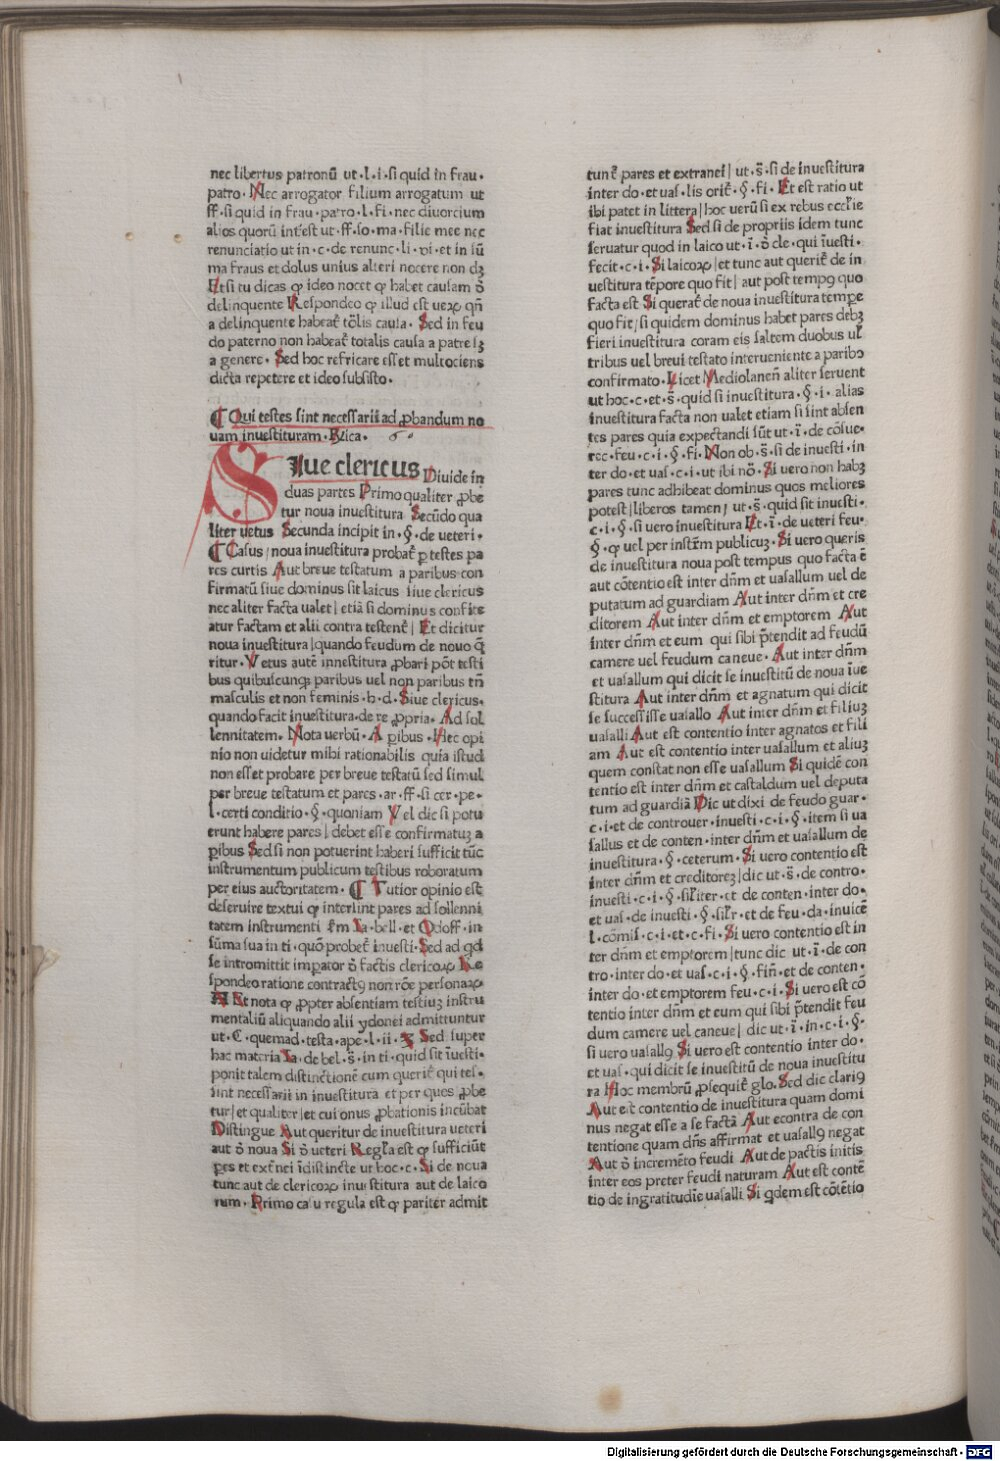 nec libertus patronū ut·l·i·si quid in frau·
patro·Nec arrogator filium arrogatum ut
ff·si quid in frau·patro·l·fi·nec diuorcium
alios quorū intest ut·ff·so·ma·filie mee nec
renunciatio ut in·c·de renunc·li·vi·et in sū
ma fraus et dolus unius alteri nocere non dꝫ
Et si tu dicas ꝙ ideo nocet ꝙ habet causam ō
delinquente Respondeo ꝙ illud est ueꝝ qn̄
a delinquente habeat̄ tōlis causa·Sed in feu
do paterno non habeat̄ totalis causa a patre sꝫ
a genere·Sed hoc refricare esset multociens
dicta repetere et ideo subsisto·
¶ Qui testes sint necessarii ad ꝓbandum no
uam inuestituram·Rͥica·
Siue clericus Diuide in
duas partes Primo qualiter ꝓbe
tur noua inuestitura Secūdo qua
liter uetus Secunda incipit in·§·de ueteri·
¶ Casus/noua inuestitura probat̄ ꝑ testes pa
res curtis Aut breue testatum a paribus con
firmatū siue dominus sit laicus siue clericus
nec aliter facta ualet|etiā si dominus confite
atur factam et alii contra testent̄|Et dicitur
noua inuestitura|quando feudum de nouo q̄
ritur·Vetus autē inuestitura ꝓbari pōt testi
bus quibuscunqꝫ paribus uel non paribus tn̄
masculis et non feminis·h·d·Siue clericus·
quando facit inuestitura·de re ꝓpria·Ad sol
lennitatem·Nota uerbū·A ꝑibus·Hec opi
nio non uidetur mihi rationabilis quia istud
non esset probare per breue testatū sed simul
per breue testatum et pares·ar·ff·si cer·pe·
l·certi conditio·§·quoniam Vel dic si potu
erunt habere pares|debet esse confirmatuꝫ a
ꝑibus Sed si non potuerint haberi sufficit tūc
instrumentum publicum testibus roboratum
per eius auctoritatem·¶ Tutior opinio est
deseruire textui ꝙ intersint pares ad sollenni
tatem instrumenti ẜm Ia·bell·et Odoff·in
sūma sua in ti·quō probet̄ inuesti·Sed ad qd
se intromittit imꝑator ō factis clericoꝝ Re
spondeo ratione contractꝰ non rōe personaꝝ
Et nota ꝙ ꝓpter absentiam testiuꝫ instru
mentaliū aliquando alii ydonei admittuntur
ut·C·quemad·testa·ape·l·ii· Sed super
hac materia Ia·de bel·s̄·in ti·quid sit īuesti·
ponit talem distinctionē cum querit̄ qui tes·
sint necessarii in inuestitura et per ques ꝓbe
tur|et qualiter|et cui onus ꝓbationis incūbat
Distingue Aut queritur de inuestitura ueteri
aut ō noua Si ō ueteri Regl̄a est ꝙ sufficiūt
ꝑes et extͣnei īdistincte ut hoc·c·Si de noua
tunc aut de clericoꝝ inuestitura aut de laico
rum·Primo casu regula est ꝙ pariter admit
tunt̄ pares et extranei|ut·s̄·si de inuestitura
inter do·et uas·lis orit̄·§·fi·Et est ratio ut
ibi patet in littera|hoc uerū si ex rebus eccl̄ie
fiat inuestitura Sed si de propriis idem tunc
seruatur quod in laico ut·ī·ō cle·qui īuesti·
fecit·c·i·Si laicoꝝ|et tunc aut querit̄ de in
uestitura tēpore quo fit|aut post tempꝰ quo
facta est Si querat̄ de noua inuestitura tempe
quo fit/si quidem dominus habet pares debꝫ
fieri inuestitura coram eis saltem duobus ul̄
tribus uel breui testato interueniente a paribꝰ
confirmato·Licet Mediolanen̄ aliter seruent
ut hoc·c·et·s̄·quid si inuestitura·§·i·alias
inuestitura facta non ualet etiam si sint absen
tes pares quia expectandi sūt ut·ī·de cōsue·
rec·feu·c·i·§·fi·Non ob·s̄·si de inuesti·in
ter do·et uas·c·i·ut ibi nō·Si uero non habꝫ
pares tunc adhibeat dominus quos meliores
potest|liberos tamen/ut·s̄·quid sit inuesti·
c·i·§·si uero inuestitura Et·ī·de ueteri feu·
§·ꝙ uel per instr̄m publicuꝫ·Si uero queris
de inuestitura noua post tempus quo facta ē
aut cōtentio est inter dn̄m et uasallum uel de
putatum ad guardiam Aut inter dn̄m et cre
ditorem Aut inter dn̄m et emptorem Aut
inter dn̄m et eum qui sibi p̄tendit ad feudū
camere uel feudum caneue·Aut inter dn̄m
et uasallum qui dicit se inuestitū de noua īue
stitura Aut inter dn̄m et agnatum qui dicit
se successisse uasallo Aut inter dn̄m et filiuꝫ
uasalli Aut est contentio inter agnatos et fili
am Aut est contentio inter uasallum et aliuꝫ
quem constat non esse uasallum Si quidē con
tentio est inter dn̄m et castaldum uel deputa
tum ad guardiā Dic ut dixi de feudo guar·
c·i·et de controuer·inuesti·c·i·§·item si ua
sallus et de conten·inter dn̄m et uasallum de
inuestitura·§·ceterum·Si uero contentio est
inter dn̄m et creditoreꝫ|dic ut·s̄·de contro·
inuesti·c·i·§·sil̄iter·et de conten·inter do·
et uas·de inuesti·§·sil̄r·et de feu·da·inuicē
l·cōmis·c·i·et·c·fi·Si uero contentio est in
ter dn̄m et emptorem|tunc dic ut·ī·de con
tro·inter do·et uas·c·i·§·fin̄·et de conten·
inter do·et emptorem feu·c·i·Si uero est cō
tentio inter dn̄m et eum qui sibi p̄tendit feu
dum camere uel caneue|dic ut·ī·in·c·i·§·
si uero uasallꝰ Si uero est contentio inter do·
et uas·qui dicit se inuestitū de noua inuestitu
ra Hoc membrū ꝓsequit̄ glo·Sed dic clariꝰ
Aut est contentio de inuestitura quam domi
nus negat esse a se factā Aut econtra de con
tentione quam dn̄s affirmat et uasallꝰ negat
Aut ō incremēto feudi Aut de pactis initis
inter eos preter feudi naturam Aut est contē
tio de ingratitudie uasalli Si qͥdem est cōtētio
Digitalisierung gefördert durch die Deutsche Forschungsgemeinschaft - DFG